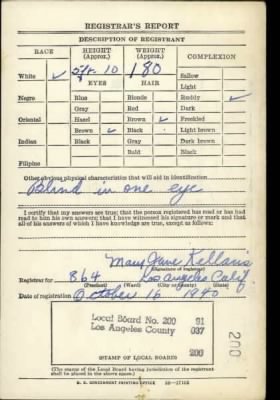 REGISTRAR'S REPORT
DESCRIPTION OF REGISTRANT
RACE HEIGHT (Approx.) WEIGHT (Approx.) COMPLEXION
White ✓ 5 ft. 10 180 Sallow
EYES HAIR Light
Negro Blue Blonde Ruddy ✓
Gray Red Dark
Oriental Hazel Brown ✓ Freckled
Brown ✓ Black Light brown
Indian Black Gray Dark brown
Bald Black
Filipino
Other obvious physical characteristics that will aid in identification
Blind in one eye
I certify that my answers are true; that the person registered has read or has had
read to him his own answers; that I have witnessed his signature or mark and that
all of his answers of which I have knowledge are true, except as follows:
Mary Jane Kellaris
(Signature of registrar)
Registrar for 864 Los Angeles Calif.
(Precinct) (Ward) (City or county) (State)
Date of registration October 16 1940
Local Board No. 200 91
Los Angeles County 037
200
200
STAMP OF LOCAL BOARD
(The stamp of the Local Board having jurisdiction of the registrant
shall be placed in the above space.)
U. S. GOVERNMENT PRINTING OFFICE 16—17105